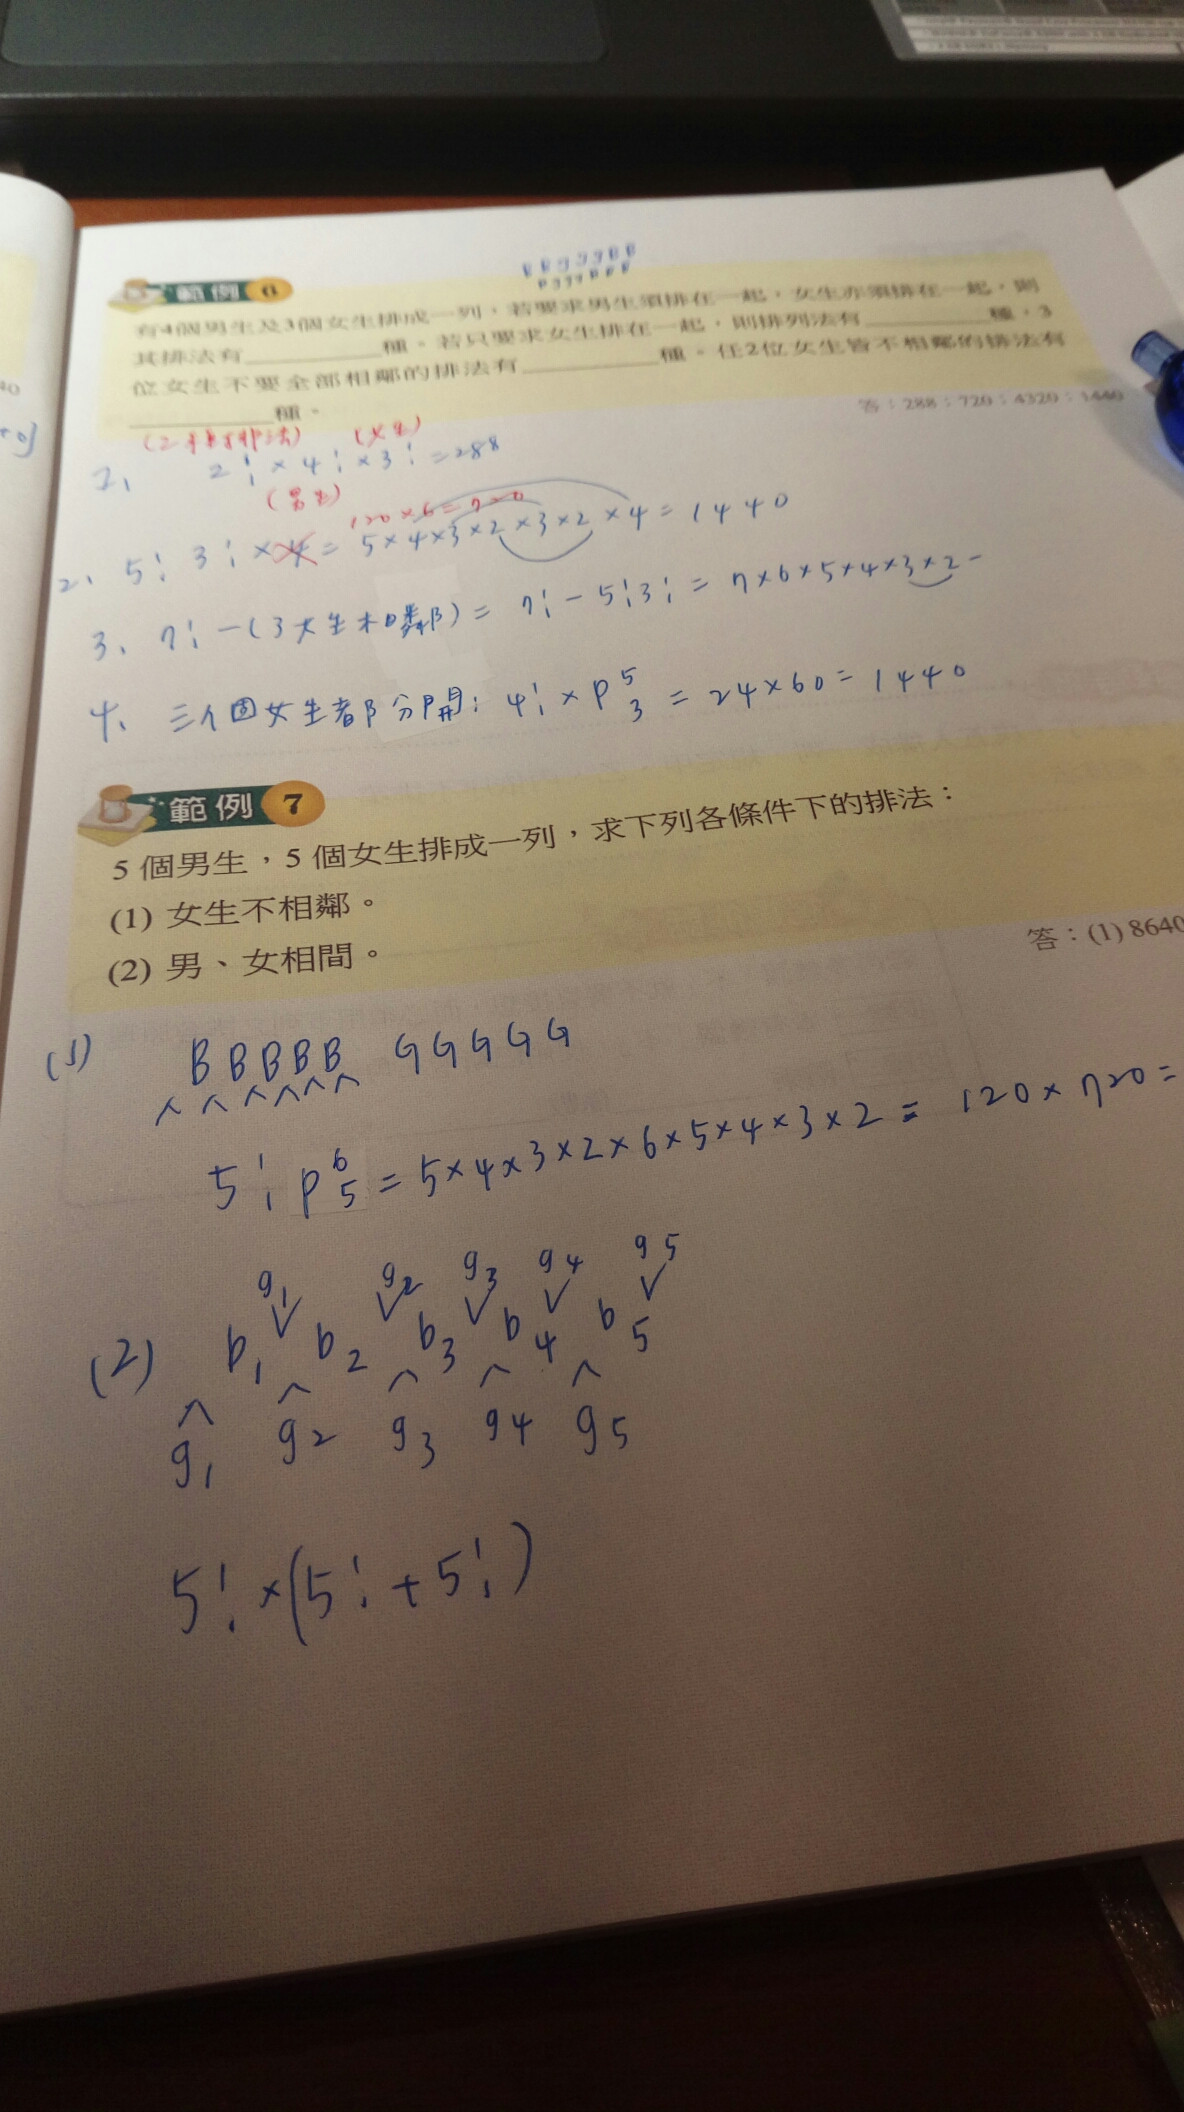 範例 6
有4個男生及3個女生排成一列,若要求男生須排在一起,女生亦須排在一起,則
其排法有________種。若只要求女生排在一起,則排列法有________種,3
位女生不要全部相鄰的排法有________種。任2位女生皆不相鄰的排法有
________種。
答:288;720;4320;1440
(女生)
1、 2! × 4! × 3! = 288
(男生)
120×6=720
2、 5! 3! × 4 = 5×4×3×2×3×2×4=1440
3、 7! -(3女生相鄰)= 7! - 5!3! = 7×6×5×4×3×2-
4、 三個女生都分開: 4! × P⁵₃ = 24×60=1440
範例 7
5 個男生,5 個女生排成一列,求下列各條件下的排法:
(1) 女生不相鄰。
(2) 男、女相間。
答:(1) 8640
(1) BBBBB GGGGG
5! P⁶₅ = 5×4×3×2×6×5×4×3×2 = 120×720=
g₁ g₂ g₃ g₄ g₅
(2) b₁ b₂ b₃ b₄ b₅
g₁ g₂ g₃ g₄ g₅
5! ×(5! + 5!)